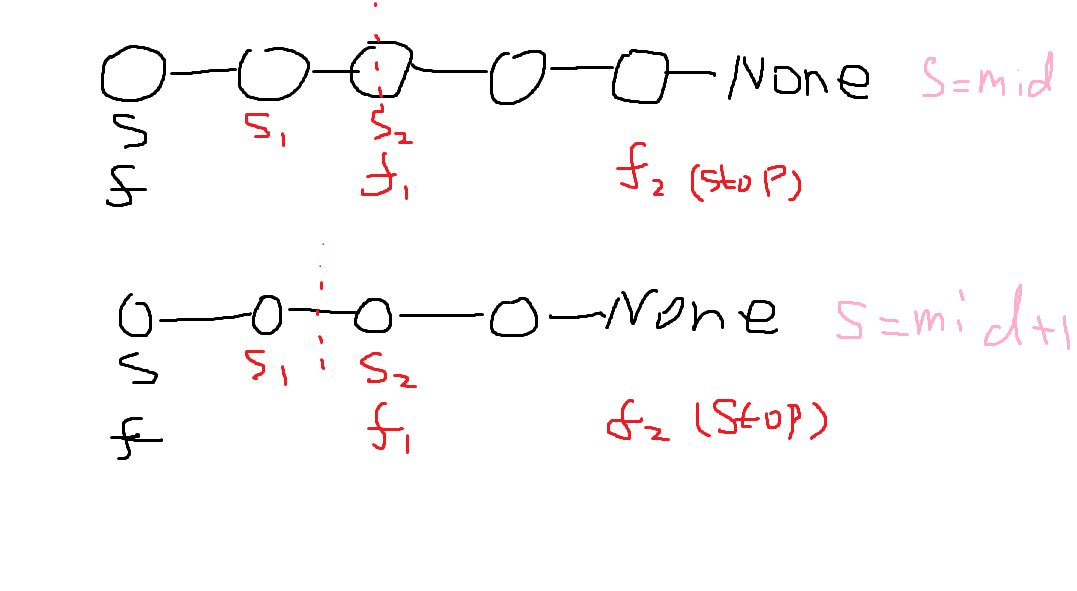 None S=mid
S S₁ S₂
f f₁ f₂ (stop)
None S=mid+1
S S₁ S₂
f f₁ f₂ (stop)